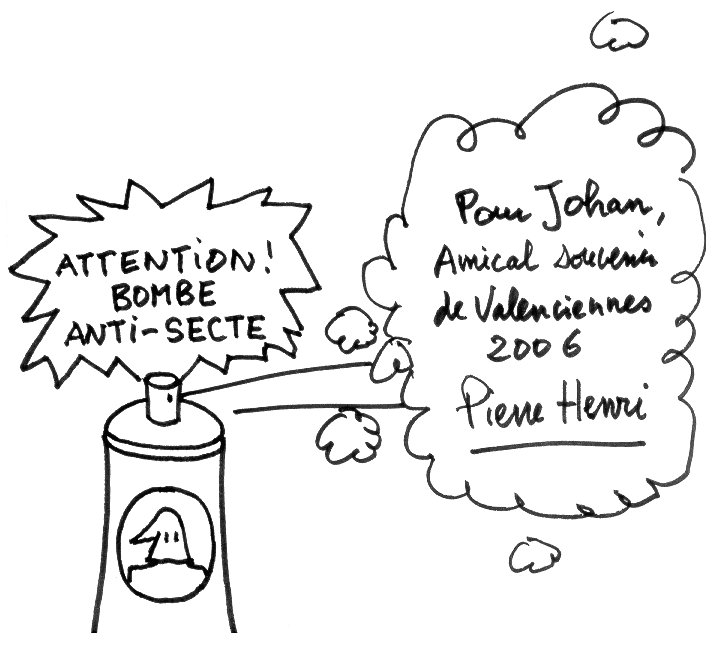 ATTENTION!
BOMBE
ANTI-SECTE
Pour Johan,
Amical souvenir
de Valenciennes
2006
Pierre Henri